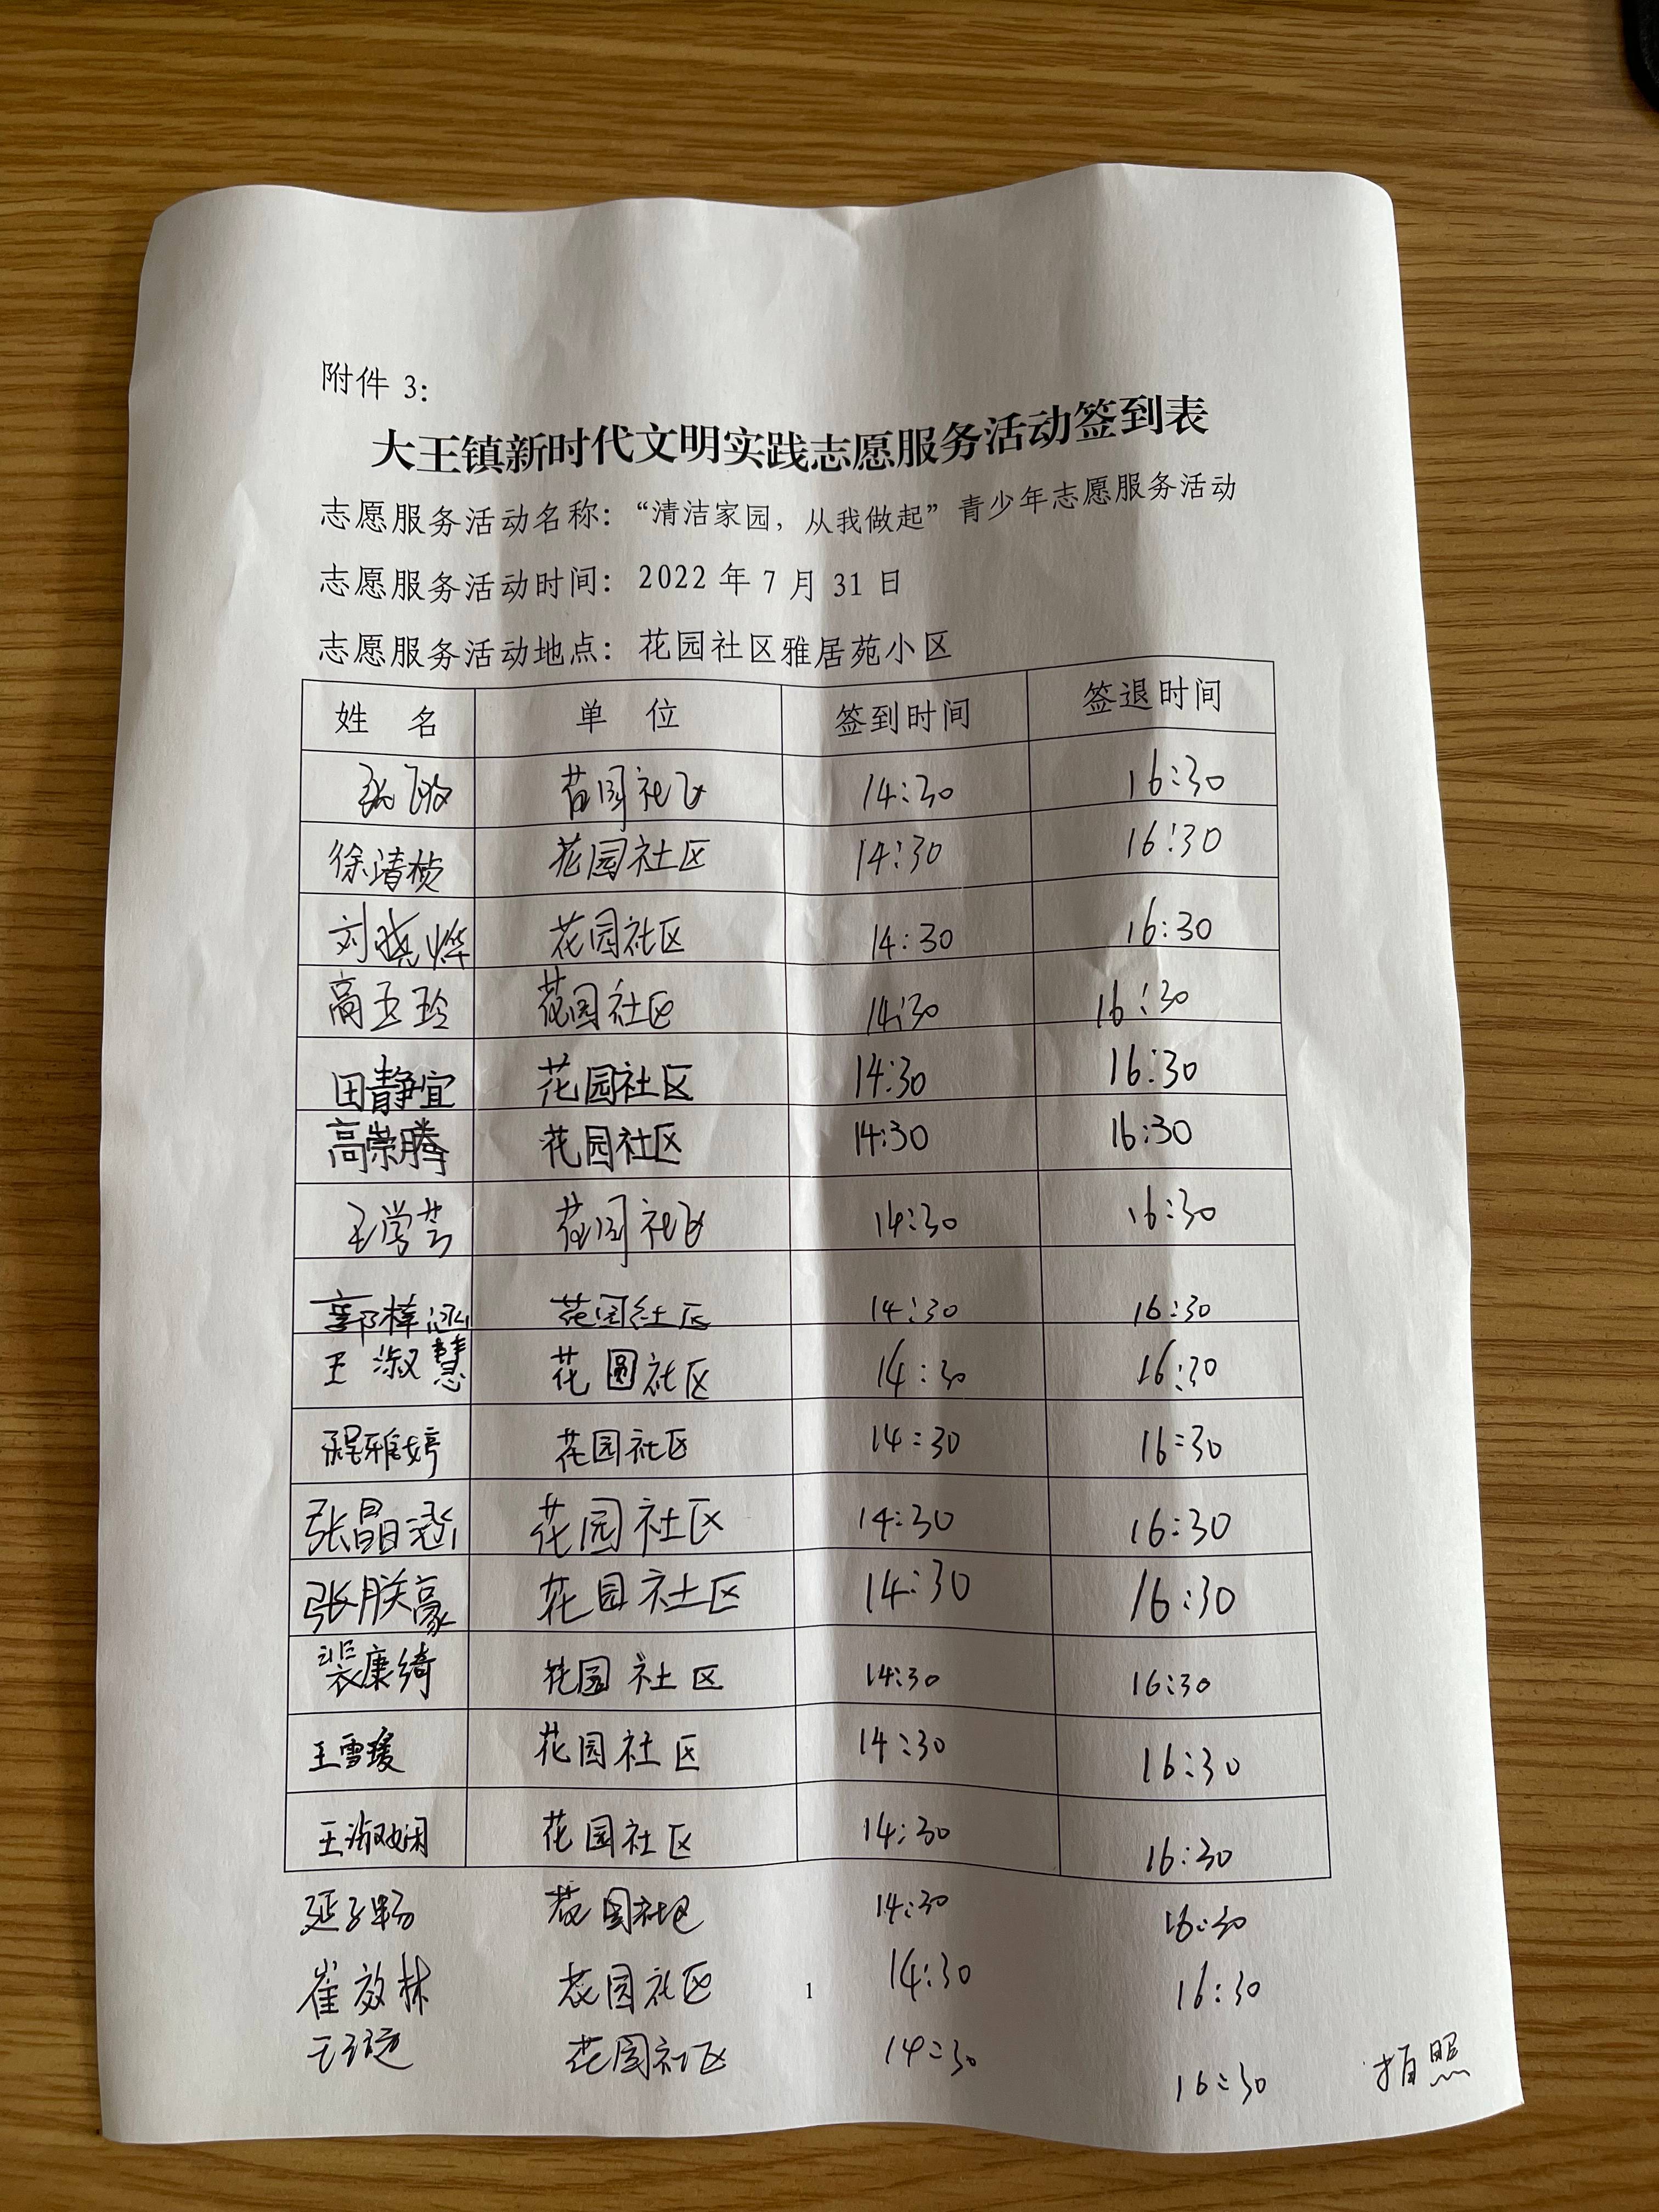 附件 3：
大王镇新时代文明实践志愿服务活动签到表
志愿服务活动名称：“清洁家园，从我做起”青少年志愿服务活动
志愿服务活动时间：2022 年 7 月 31 日
志愿服务活动地点：花园社区雅居苑小区
姓 名 单 位 签到时间 签退时间
花园社区 14:30 16:30
徐靖桢 花园社区 14:30 16:30
刘晓烨 花园社区 14:30 16:30
高玉玲 花园社区 14:30 16:30
田静宜 花园社区 14:30 16:30
高崇腾 花园社区 14:30 16:30
王学芸 花园社区 14:30 16:30
郭梓涵 花园社区 14:30 16:30
王淑慧 花园社区 14:30 16:30
程雅婷 花园社区 14:30 16:30
张晶涵 花园社区 14:30 16:30
张朕豪 花园社区 14:30 16:30
裴康绮 花园社区 14:30 16:30
王雪瑗 花园社区 14:30 16:30
王淑娴 花园社区 14:30 16:30
延子畅 花园社区 14:30 16:30
崔效林 花园社区 14:30 16:30
花园社区 14:30 16:30
拍照
1